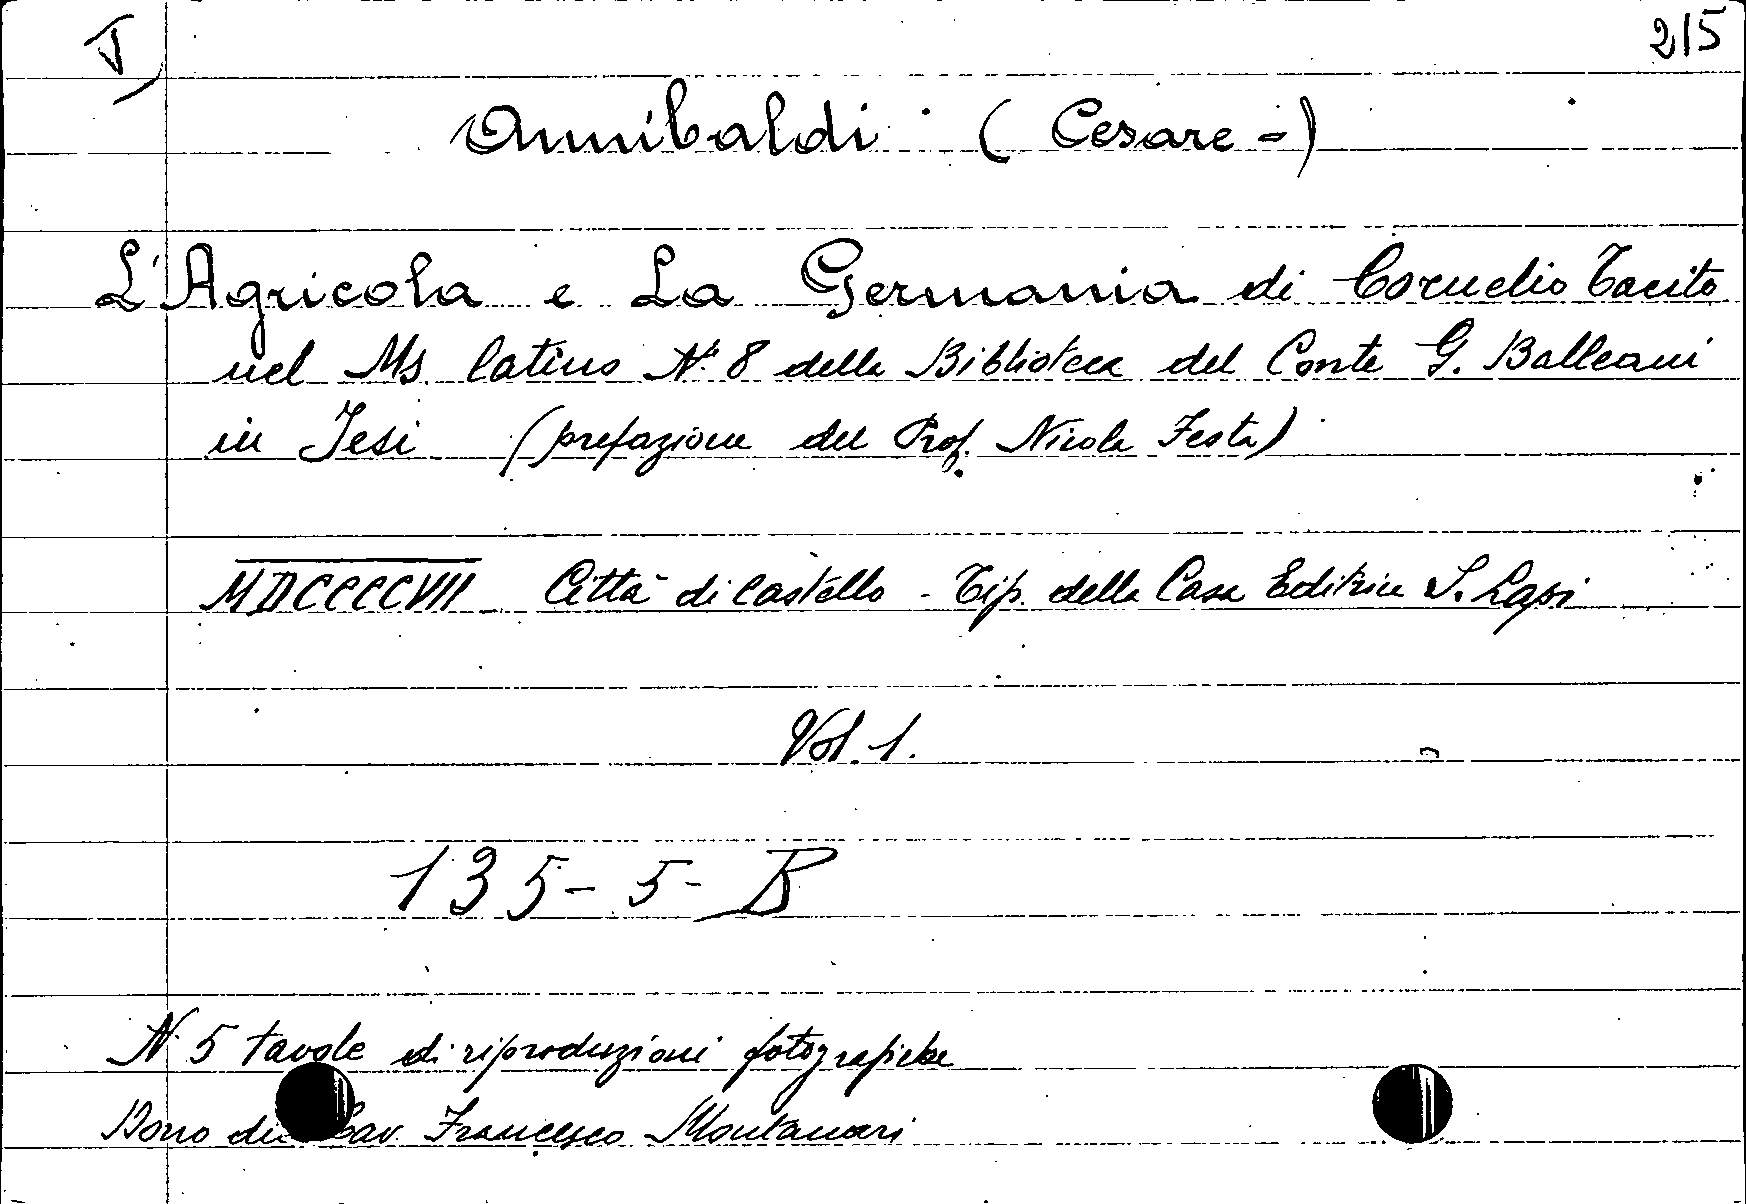 215
Annibaldi (Cesare -)
L'Agricola e La Germania di Cornelio Tacito
nel Ms. latino N. 8 della Biblioteca del Conte G. Balleani
in Jesi (prefazione del Prof. Nicola Festa)
MDCCCCVII Città di Castello - Tip. della Casa Editrice S. Lapi
Vol. 1.
135-5-B
N. 5 tavole di riproduzioni fotografiche
Dono del Cav. Francesco Montanari